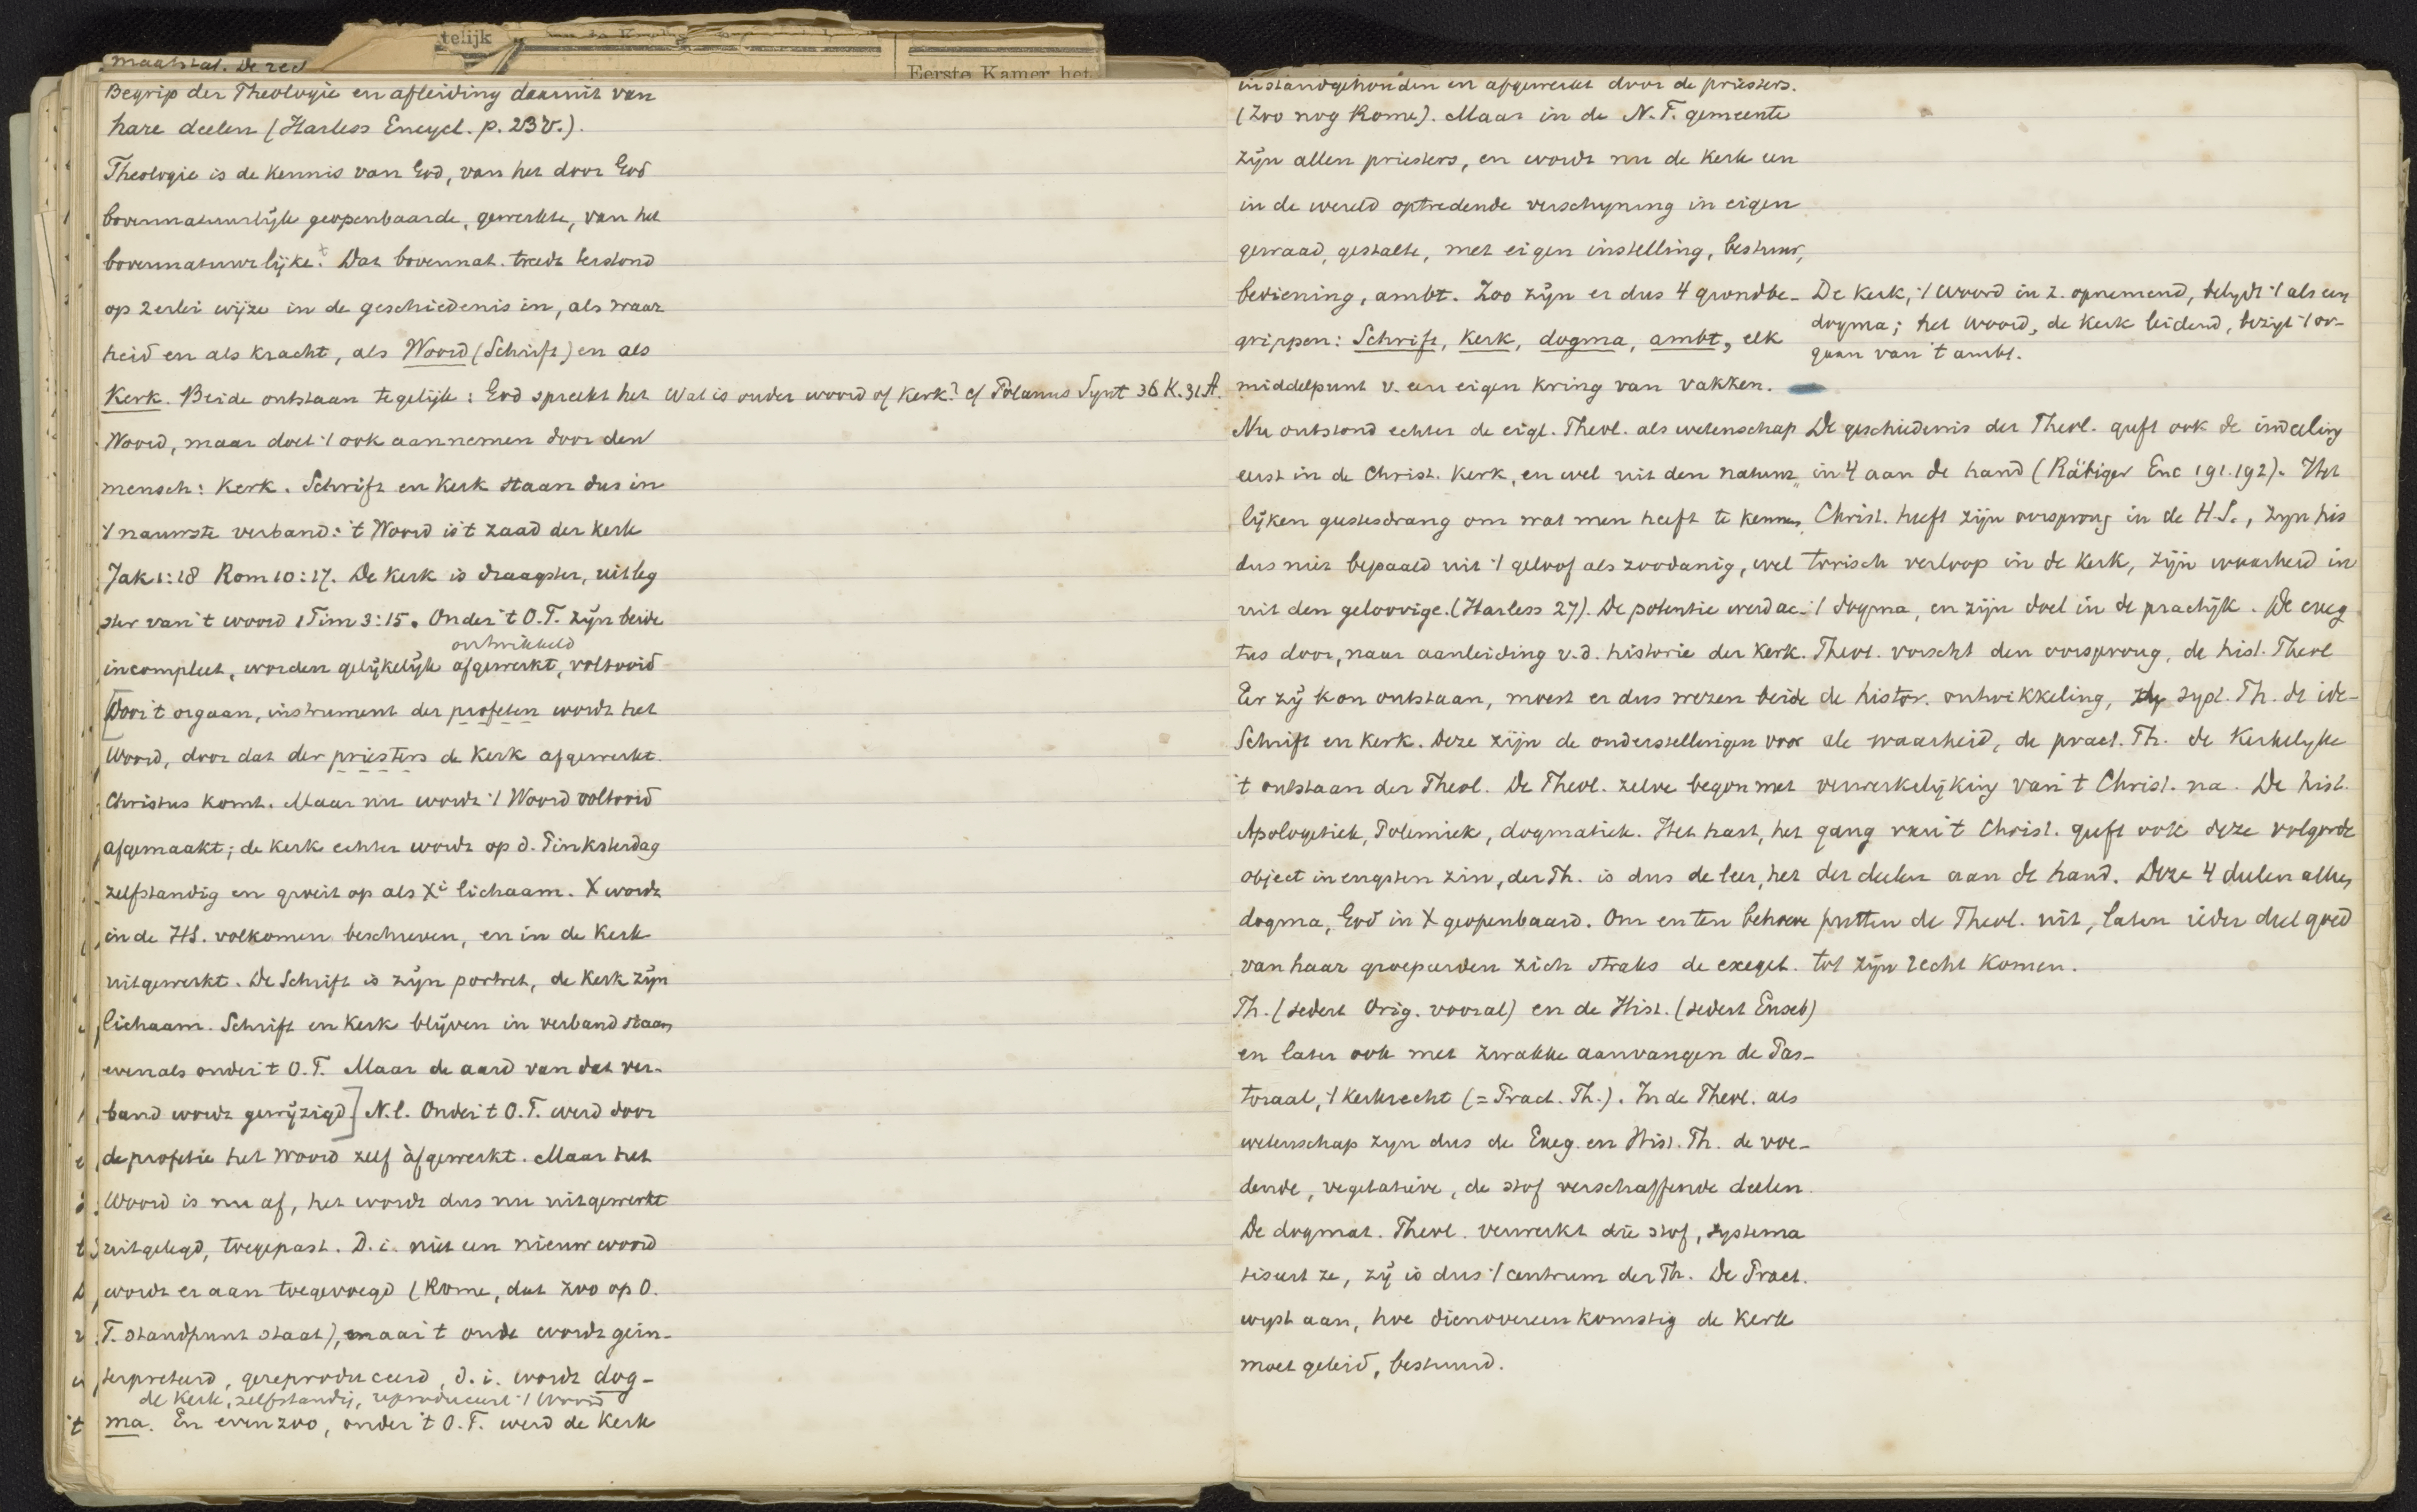 telijk
Eerste Kamer het
maatstaf. De red
Begrip der Theologie en afleiding daaruit van
hare deelen (Harless Encycl. p. 23 v.).
Theologie is de kennis van God, van het door God
bovennatuurlijk geopenbaarde, gewerkte, van het
bovennatuurlijke. Dat bovennat. treedt terstond
op 2erlei wijze in de geschiedenis in, als waar
heid en als kracht, als Woord (Schrift) en als
Kerk. Beide ontstaan tegelijk: God spreekt het
Wat is ouder woord of Kerk? cf Polanus Synt 36 K. 31 A.
Woord, maar doet 't ook aannemen door den
mensch: Kerk. Schrift en Kerk staan dus in
't nauwste verband: 't Woord is 't zaad der Kerk
Jak 1:18 Rom 10:17. De Kerk is draagster, uitleg
ster van 't woord 1 Tim 3:15. Onder 't O.T. zijn beide
ontwikkeld
incompleet, worden gelijkelijk afgewerkt, voltooid
[Door 't orgaan, instrument der profeten wordt het
Woord, door dat der priesters de Kerk afgewerkt.
Christus komt. Maar nu wordt 't Woord voltooid
afgemaakt; de Kerk echter wordt op d. Pinksterdag
zelfstandig en groeit op als Xi lichaam. X wordt
in de HS. volkomen beschreven, en in de Kerk
uitgewerkt. De Schrift is zijn portret, de Kerk zijn
lichaam. Schrift en Kerk blijven in verband staan,
evenals onder 't O.T. Maar de aard van dat ver-
band wordt gewijzigd] N.l. Onder 't O.T. werd door
de profetie het Woord zelf àfgewerkt. Maar het
Woord is nu af, het wordt dus nu uitgewerkt
uitgelegd, toegepast. D.i. niet een nieuw woord
wordt er aan toegevoegd (Rome, dat zoo op O.
T. standpunt staat), maar 't oude wordt geïn-
terpreteerd, gereproduceerd, d.i. wordt dog-
de Kerk, zelfstandig, reproduceert 't Woord
ma. En evenzoo, onder 't O.T. werd de Kerk
instandgehouden en afgewerkt door de priesters.
(Zoo nog Rome). Maar in de N.T. gemeente
zijn allen priesters, en wordt nu de Kerk een
in de wereld optredende verschijning in eigen
gewaad, gestalte, met eigen instelling, bestuur,
bediening, ambt. Zoo zijn er dus 4 grondbe-
grippen: Schrift, Kerk, dogma, ambt, elk
middelpunt v. een eigen kring van vakken.
Nu ontstond echter de eigl. Theol. als wetenschap
eerst in de Christ. Kerk, en wel uit den natuur„
lijken geestesdrang om wat men heeft te kennen,
dus niet bepaald uit 't geloof als zoodanig, wel
uit den geloovige. (Harless 27). De potentie werd ac-
tus door, naar aanleiding v.d. historie der Kerk.
Eer zij kon ontstaan, moest er dus wezen beide
Schrift en Kerk. Deze zijn de onderstellingen voor
't ontstaan der Theol. De Theol. zelve begon met
Apologetiek, Polemiek, dogmatiek. Het hart, het
object in engsten zin, der Th. is dus de leer, het
dogma, God in X geopenbaard. Om en ten behoeve
van haar groepeerden zich straks de exeget.
Th. (sedert Orig. vooral) en de Hist. (sedert Euseb)
en later ook met zwakke aanvangen de Pas-
toraal, 't Kerkrecht (= Pract. Th.). In de Theol. als
wetenschap zijn dus de Exeg. en Hist. Th. de voe-
dende, vegetatieve, de stof verschaffende deelen.
De dogmat. Theol. verwerkt die stof, systema
tiseert ze, zij is dus 't centrum der Th. De Pract.
wijst aan, hoe dienovereenkomstig de Kerk
moet geleid, bestuurd.
De Kerk, 't woord in z. opnemend, belijdt 't als een
dogma; het woord, de Kerk leidend, bezigt 't or-
gaan van 't ambt.
De geschiedenis der Theol. geeft ook de indeeling
in 4 aan de hand (Räbiger Enc 191.192). Het
Christ. heeft zijn oorsprong in de H.S., zijn his
torisch verloop in de Kerk, zijn waarheid in
't dogma, en zijn doel in de practijk. De exeg
Theol. vorscht den oorsprong, de hist. Theol
de histor. ontwikkeling, syst. Th. de ide-
ale waarheid, de pract. Th. de Kerkelijke
verwerkelijking van 't Christ. na. De hist.
gang van 't Christ. geeft ook deze volgorde
der deelen aan de hand. Deze 4 deelen alles,
putten de Theol. uit, laten ieder deel goed
tot zijn recht komen.